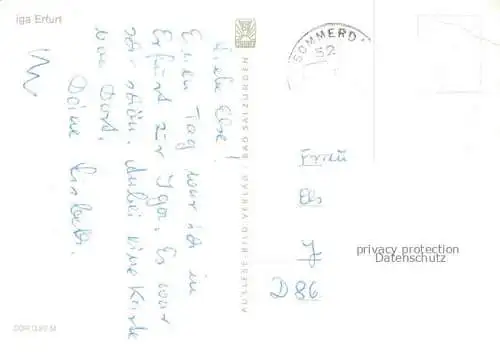 iga Erfurt
Liebe Else!
Einen Tag war ich in
Erfurt zur Iga. Es war
sehr schön. Anbei eine Karte
von Dort.
Deine
AUSLESE-BILD-VERLAG / BAD SALZUNGEN
SÖMMERD
52
Frau
Els
J
D 86
privacy protection
DATENSCHUTZ